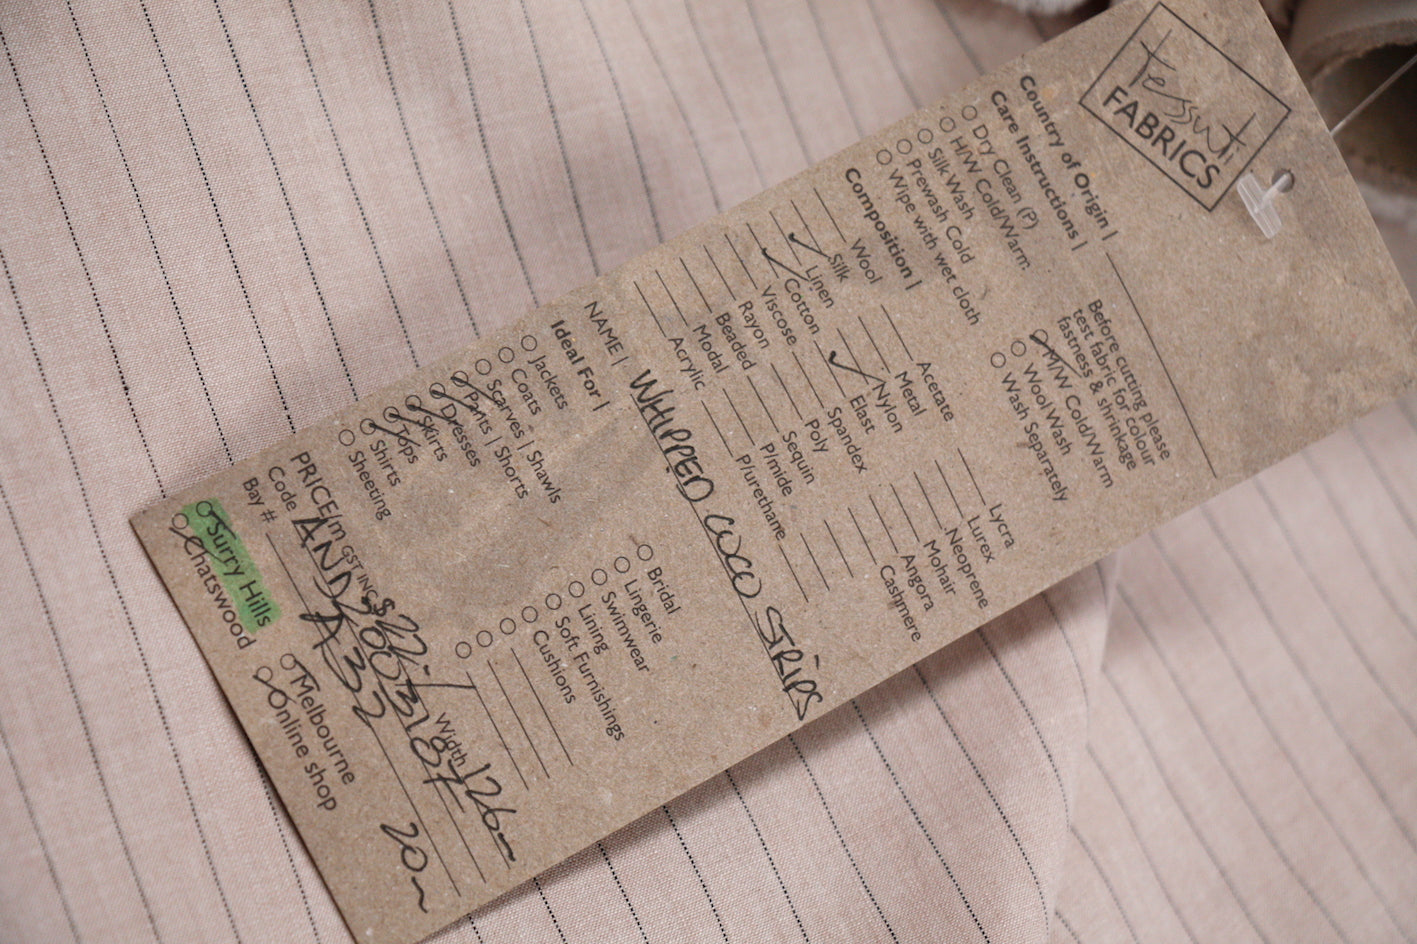 tessuti
FABRICS
Country of Origin |
Care Instructions |
Dry Clean (P)
H/W Cold/Warm
Silk Wash
Prewash Cold
Wipe with wet cloth
Before cutting please
test fabric for colour
fastness & shrinkage
M/W Cold/Warm
Wool Wash
Wash Separately
Composition |
Wool
Silk
Linen
Cotton
Viscose
Rayon
Beaded
Modal
Acrylic
Acetate
Metal
Nylon
Elast
Spandex
Poly
Sequin
P/mide
P/urethane
Lycra
Lurex
Neoprene
Mohair
Angora
Cashmere
NAME | WHIPPED COCO STRIPS
Ideal For |
Jackets
Coats
Scarves | Shawls
Pants | Shorts
Dresses
Skirts
Tops
Shirts
Sheeting
Bridal
Lingerie
Swimwear
Lining
Soft Furnishings
Cushions
PRICE/m GST INC Width 126m
Code
Bay # A32 20m
Surry Hills
Chatswood
Melbourne
Online shop